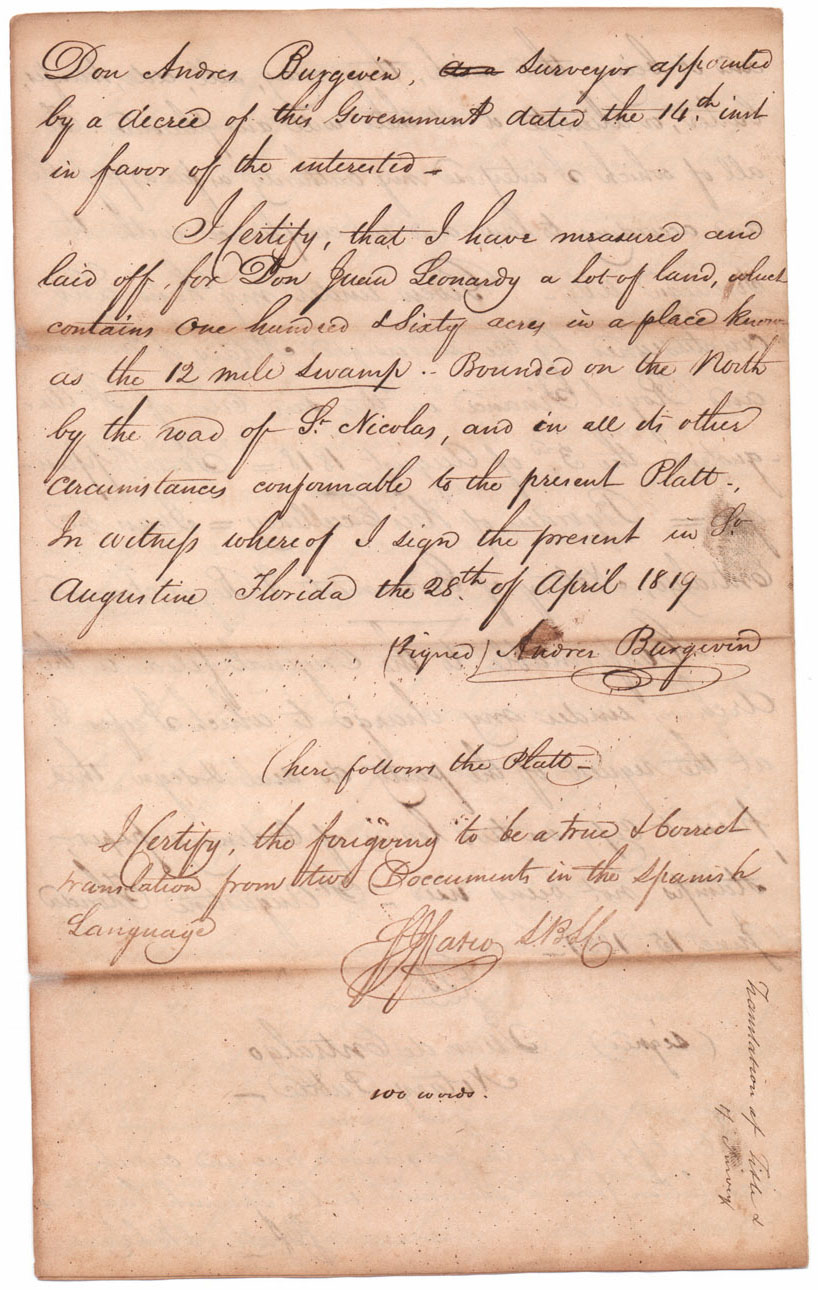 Don Andres Burgevin, as a surveyor appointed
by a decree of this Government dated the 14th inst
in favor of the interested -
I Certify, that I have measured and
laid off, for Don Juan Leonardy a Lot of land, which
contains One hundred & Sixty acres in a place known
as the 12 mile swamp .- Bounded on the North
by the road of St Nicolas, and in all its other
circumstances conformable to the present Platt -.
In witness whereof I sign the present in St
Augustine Florida the 28th of April 1819
(Signed) Andres Burgevin
(here follows the Platt -
I Certify, the forigoving to be a true & Correct
translation from two Doccuments in the Spanish
Language
S.B.L.C
100 words.
Translation of Title &
Survey